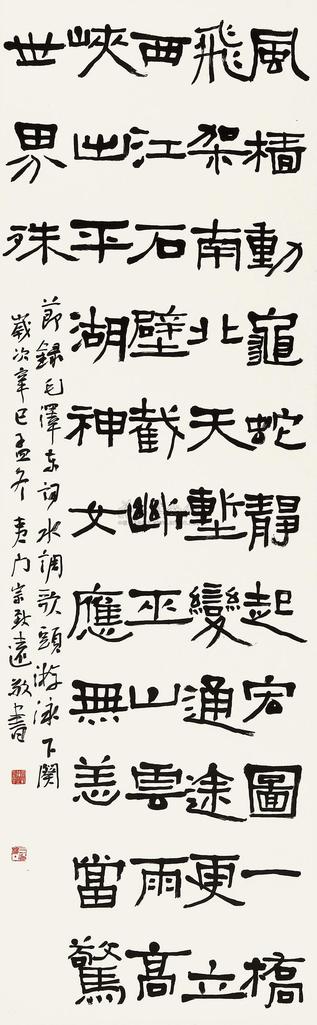 風檣動龜蛇靜起宏圖一橋
飛架南北天塹變通途更立
西江石壁截斷巫山雲雨高
峽出平湖神女應無恙當驚
世界殊
節録毛澤东词水調歌頭游泳下闋
歲次辛巳孟冬夷门宗致遠敬書